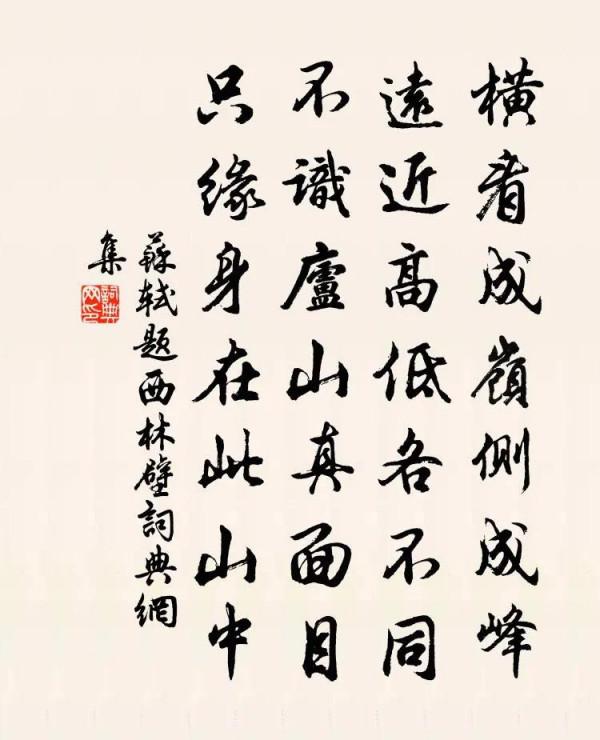 橫看成嶺側成峰
遠近高低各不同
不識廬山真面目
只緣身在此山中
蘇軾題西林壁詞典網
集
詞典網印